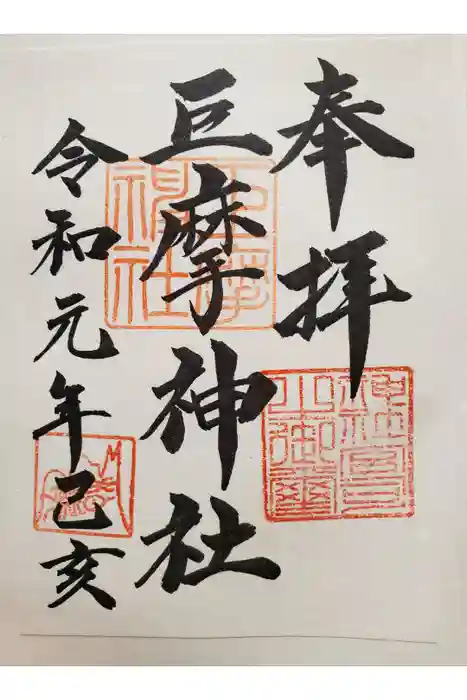 奉拝
巨摩神社
令和元年己亥